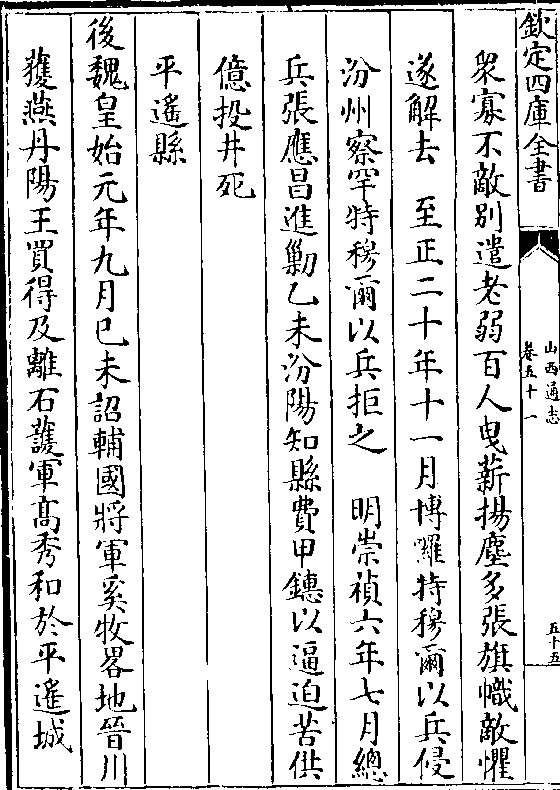 欽定四庫全書
山西通志
卷五十一
五十五
衆寡不敵别遣老弱百人曳薪揚塵多張旗幟敵懼
遂解去　至正二十年十一月博囉特穆爾以兵侵
汾州察罕特穆爾以兵拒之　明崇禎六年七月總
兵張應昌進勦乙未汾陽知縣費甲鏸以逼迫苦供
億投井死
平遙縣
後魏皇始元年九月己未詔輔國將軍奚牧畧地晉川
獲燕丹陽王買得及離石護軍髙秀和於平遙城